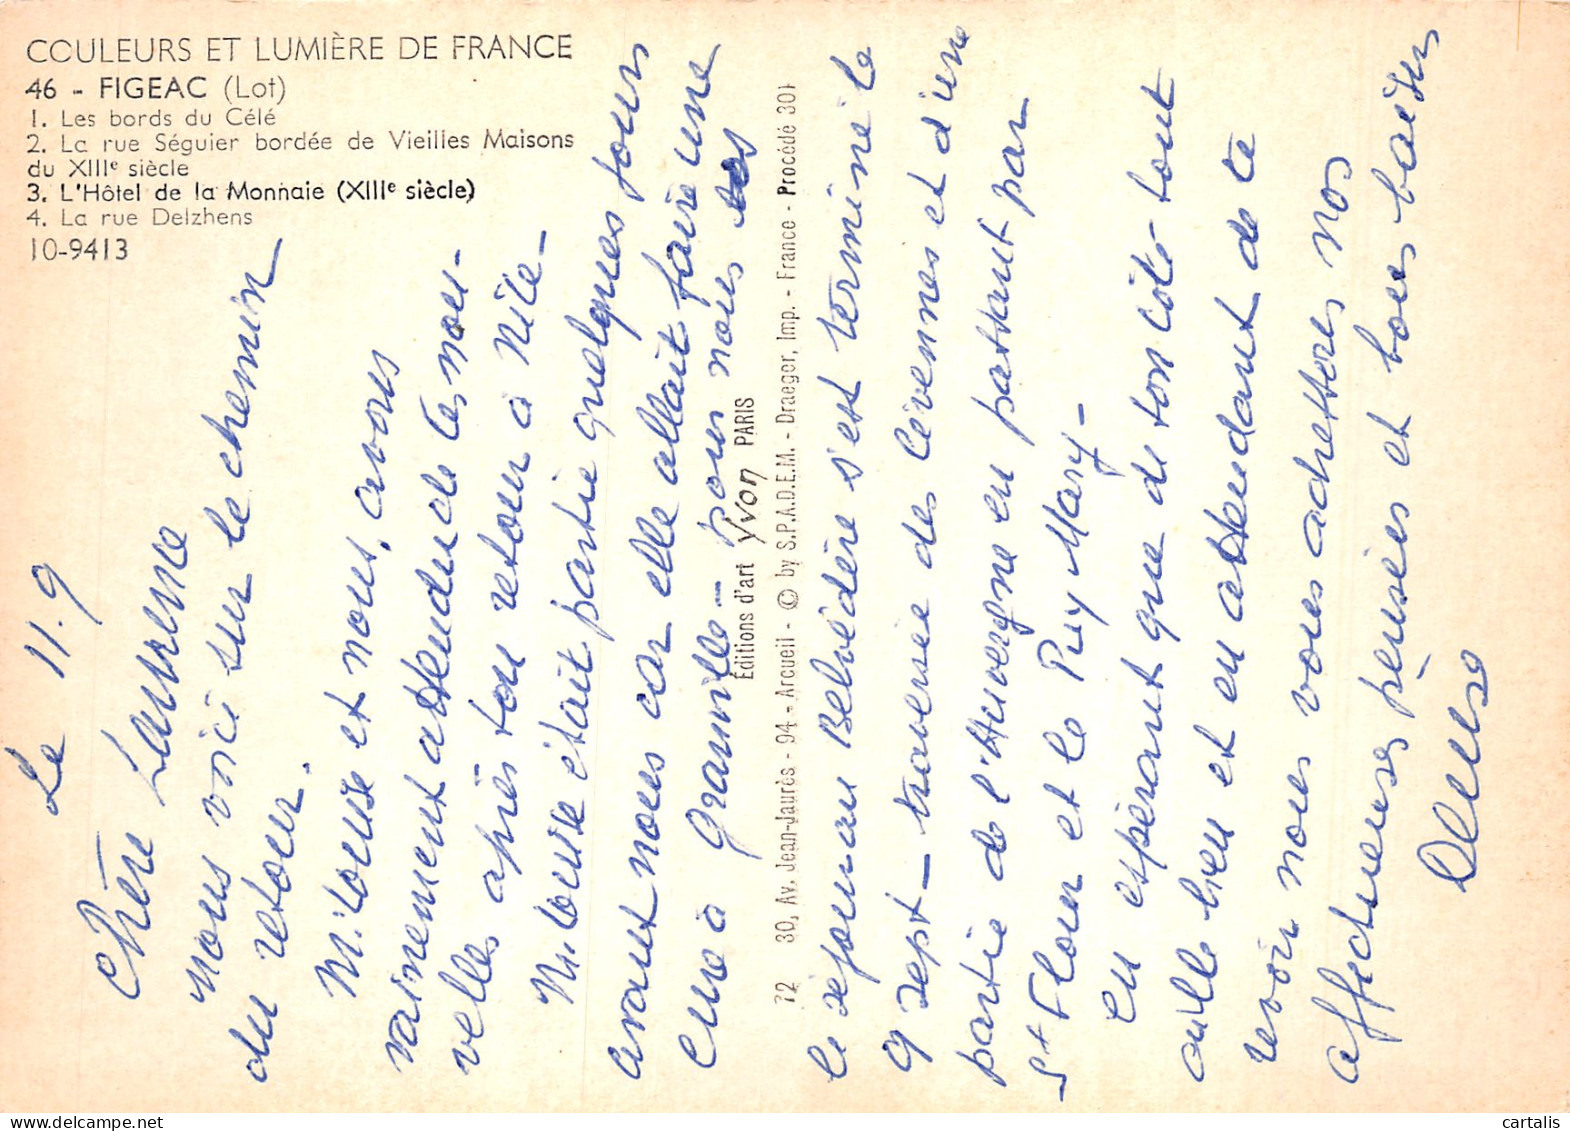 COULEURS ET LUMIÈRE DE FRANCE
46 - FIGEAC (Lot)
1. Les bords du Célé
2. La rue Séguier bordée de Vieilles Maisons
du XIIIe siècle
3. L'Hôtel de la Monnaie (XIIIe siècle)
4. La rue Delzhens
10-9413
Le 11.9
Chère Laurence
nous voici sur le chemin
du retour.
M. Louise et nous, avons
vainement attendu de tes nou-
velles après ton retour à Nice -
M. Louise était partie quelques jours
avant nous car elle allait faire une
cure à Granville - pour nous
le séjour au Belvédère s'est terminé le
9 sept - traversée des Cévennes et d'une
partie de l'Auvergne en passant par
St Flour et le Puy Mary -
En espérant que de ton côté tout
aille bien et en attendant de te
revoir nous vous adressons nos
affectueuses pensées et bons baisers
Denise
Éditions d'art Yvon PARIS
72 30, Av. Jean-Jaurès - 94 - Arcueil - © by S.P.A.D.E.M. - Draeger, Imp. - France - Procédé 301
cartalis
delcampe.net